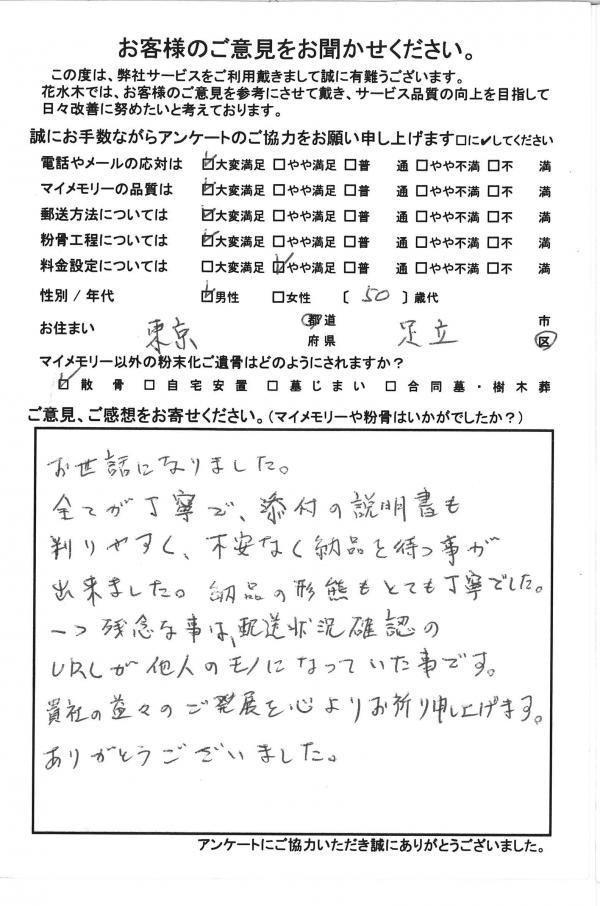 お客様のご意見をお聞かせください。
この度は、弊社サービスをご利用戴きまして誠に有難うございます。
花水木では、お客様のご意見を参考にさせて戴き、サービス品質の向上を目指して
日々改善に努めたいと考えております。
誠にお手数ながらアンケートのご協力をお願い申し上げます□に✓してください
電話やメールの応対は ☑大変満足 □やや満足 □普 通 □やや不満 □不 満
マイメモリーの品質は ☑大変満足 □やや満足 □普 通 □やや不満 □不 満
郵送方法については ☑大変満足 □やや満足 □普 通 □やや不満 □不 満
粉骨工程については ☑大変満足 □やや満足 □普 通 □やや不満 □不 満
料金設定については □大変満足 ☑やや満足 □普 通 □やや不満 □不 満
性別/年代 ☑男性 □女性 〔 50 〕歳代
お住まい 東京 都道府県 足立 市区
マイメモリー以外の粉末化ご遺骨はどのようにされますか？
☑ 散 骨 □ 自宅安置 □ 墓じまい □ 合同墓・樹木葬
ご意見、ご感想をお寄せください。(マイメモリーや粉骨はいかがでしたか？)
お世話になりました。
全てが丁寧で、添付の説明書も
判りやすく、不安なく納品を待つ事が
出来ました。納品の形態もとても丁寧でした。
一つ残念な事は、配送状況確認の
URLが他人のモノになっていた事です。
貴社の益々のご発展を心よりお祈り申し上げます。
ありがとうございました。
アンケートにご協力いただき誠にありがとうございました。